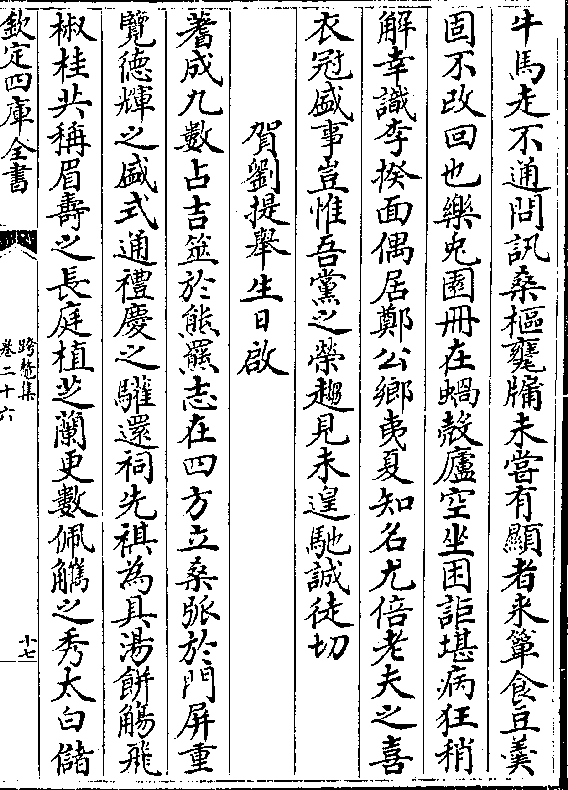 牛馬走不通問訊桑樞甕牖未嘗有顯者来簞食豆羹
固不改回也樂兔園冊在蝸殼廬空坐困詎堪病狂稍
解幸識李揆面偶居鄭公鄉夷夏知名尤倍老夫之喜
衣冠盛事豈惟吾黨之榮趨見未遑馳誠徒切
賀劉提舉生日啟
蓍成九數占吉筮於熊羆志在四方立桑弧於門屏重
覽徳輝之盛式通禮慶之驩還祠先禖為具湯餅觴飛
椒桂共稱眉壽之長庭植芝蘭更數佩觿之秀太白儲
欽定四庫全書
跨鼇集
卷二十六
十七